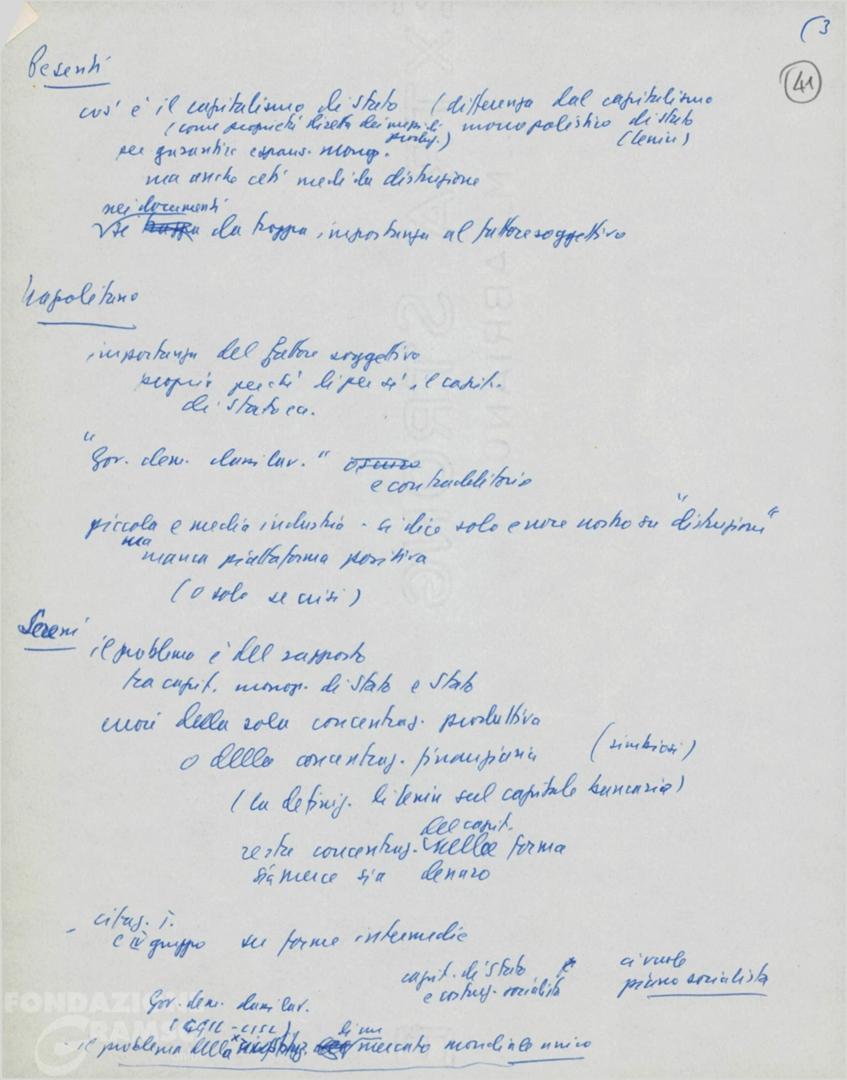 (3
41
Pesenti
cos' è il capitalismo di stato (differenza dal capitalismo
(come proprietà diretta dei mezzi di produz.) monopolistico di stato
(Lenin)
per garantire espans. monop.
ma anche ceti medi da distruzione
nei documenti
si dà troppa importanza al fattore soggettivo
Napolitano
importanza del fattore soggettivo
proprio perché di per sé il capit.
di stato ca.
"Gov. dem. dei lav."
e contradditorio
piccola e media industria - si dice solo errore nostro su "distruzione"
ma
manca piattaforma positiva
(o solo se crisi)
Sereni
il problema è del rapporto
tra capit. monop. di stato e stato
della sola concentraz. produttiva
o della concentraz. finanziaria (simbiosi)
(la definiz. di Lenin sul capitale bancario)
del capit.
resta concentraz. nelle forma
sia merce sia denaro
- citaz. I.
e IV gruppo su forme intermedie
capit. di stato e costruz. socialista
ci vuole
piano socialista
Gov. dem. dei lav.
(CGIL-CISL)
- il problema della di un mercato mondiale unico
FONDAZIONE
GRAMSCI